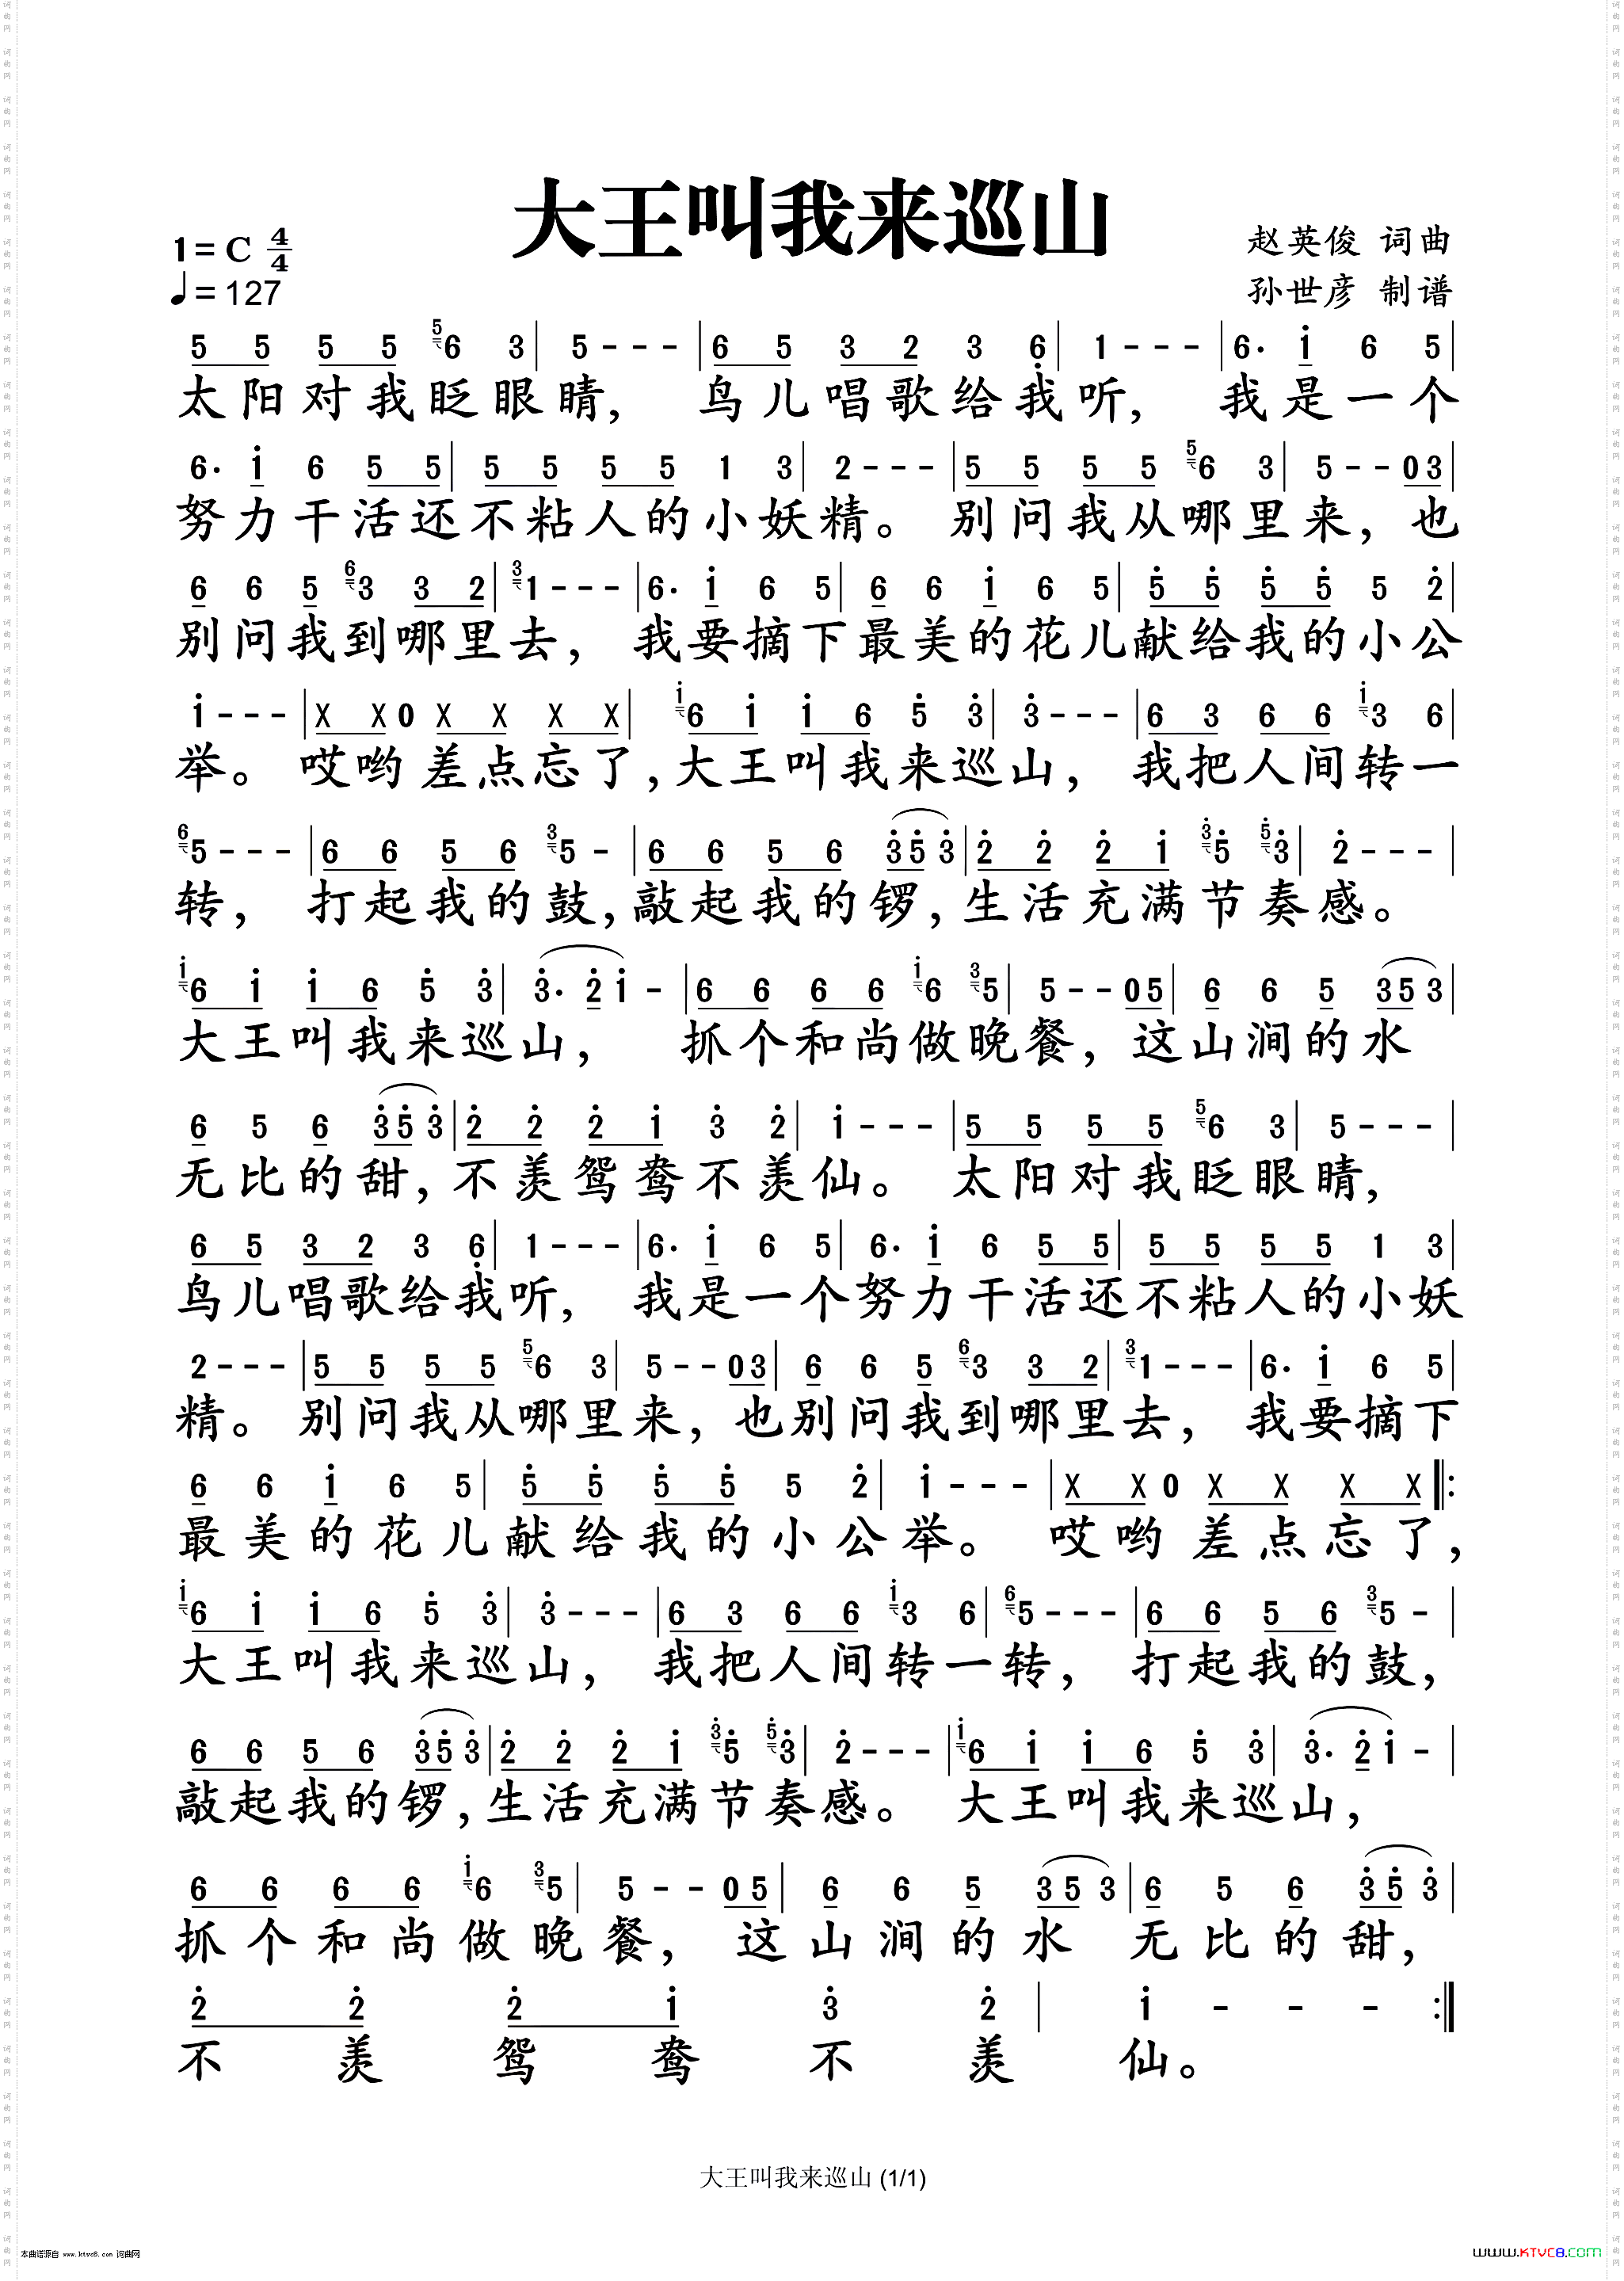 大王叫我来巡山
1=C 4/4
♩=127
赵英俊 词曲
孙世彦 制谱
5 5 5 5 5 6 3 | 5 - - - | 6 5 3 2 3 6 | 1 - - - | 6. i 6 5 |
太阳对我眨眼睛, 鸟儿唱歌给我听, 我是一个
6. i 6 5 5 | 5 5 5 5 1 3 | 2 - - - | 5 5 5 5 5 6 3 | 5 - - 0 3 |
努力干活还不粘人的小妖精。 别问我从哪里来, 也
6 6 5 6 3 3 2 | 3 1 - - - | 6. i 6 5 | 6 6 i 6 5 | 5 5 5 5 5 2 |
别问我到哪里去, 我要摘下最美的花儿献给我的小公
i - - - | X X 0 X X X X | i 6 i i 6 5 3 | 3 - - - | 6 3 6 6 i 3 6 |
举。 哎哟差点忘了,大王叫我来巡山, 我把人间转一
6 5 - - - | 6 6 5 6 3 5 - | 6 6 5 6 3 5 3 | 2 2 2 i 3 5 5 3 | 2 - - - |
转, 打起我的鼓,敲起我的锣,生活充满节奏感。
i 6 i i 6 5 3 | 3. 2 i - | 6 6 6 6 i 6 3 5 | 5 - - 0 5 | 6 6 5 3 5 3 |
大王叫我来巡山, 抓个和尚做晚餐, 这山涧的水
6 5 6 3 5 3 | 2 2 2 i 3 2 | i - - - | 5 5 5 5 5 6 3 | 5 - - - |
无比的甜,不羡鸳鸯不羡仙。 太阳对我眨眼睛,
6 5 3 2 3 6 | 1 - - - | 6. i 6 5 | 6. i 6 5 5 | 5 5 5 5 1 3 |
鸟儿唱歌给我听, 我是一个努力干活还不粘人的小妖
2 - - - | 5 5 5 5 5 6 3 | 5 - - 0 3 | 6 6 5 6 3 3 2 | 3 1 - - - | 6. i 6 5 |
精。 别问我从哪里来, 也别问我到哪里去, 我要摘下
6 6 i 6 5 | 5 5 5 5 5 2 | i - - - | X X 0 X X X X |:
最美的花儿献给我的小公举。 哎哟差点忘了,
i 6 i i 6 5 3 | 3 - - - | 6 3 6 6 i 3 6 | 6 5 - - - | 6 6 5 6 3 5 - |
大王叫我来巡山, 我把人间转一转, 打起我的鼓,
6 6 5 6 3 5 3 | 2 2 2 i 3 5 5 3 | 2 - - - | i 6 i i 6 5 3 | 3. 2 i - |
敲起我的锣,生活充满节奏感。 大王叫我来巡山,
6 6 6 6 i 6 3 5 | 5 - - 0 5 | 6 6 5 3 5 3 | 6 5 6 3 5 3 |
抓个和尚做晚餐, 这山涧的水 无比的甜,
2 2 2 i 3 2 | i - - - :|
不羡鸳鸯不羡仙。
大王叫我来巡山 (1/1)
本曲谱源自 www.ktvc8.com 词曲网
www.KTVC8.com